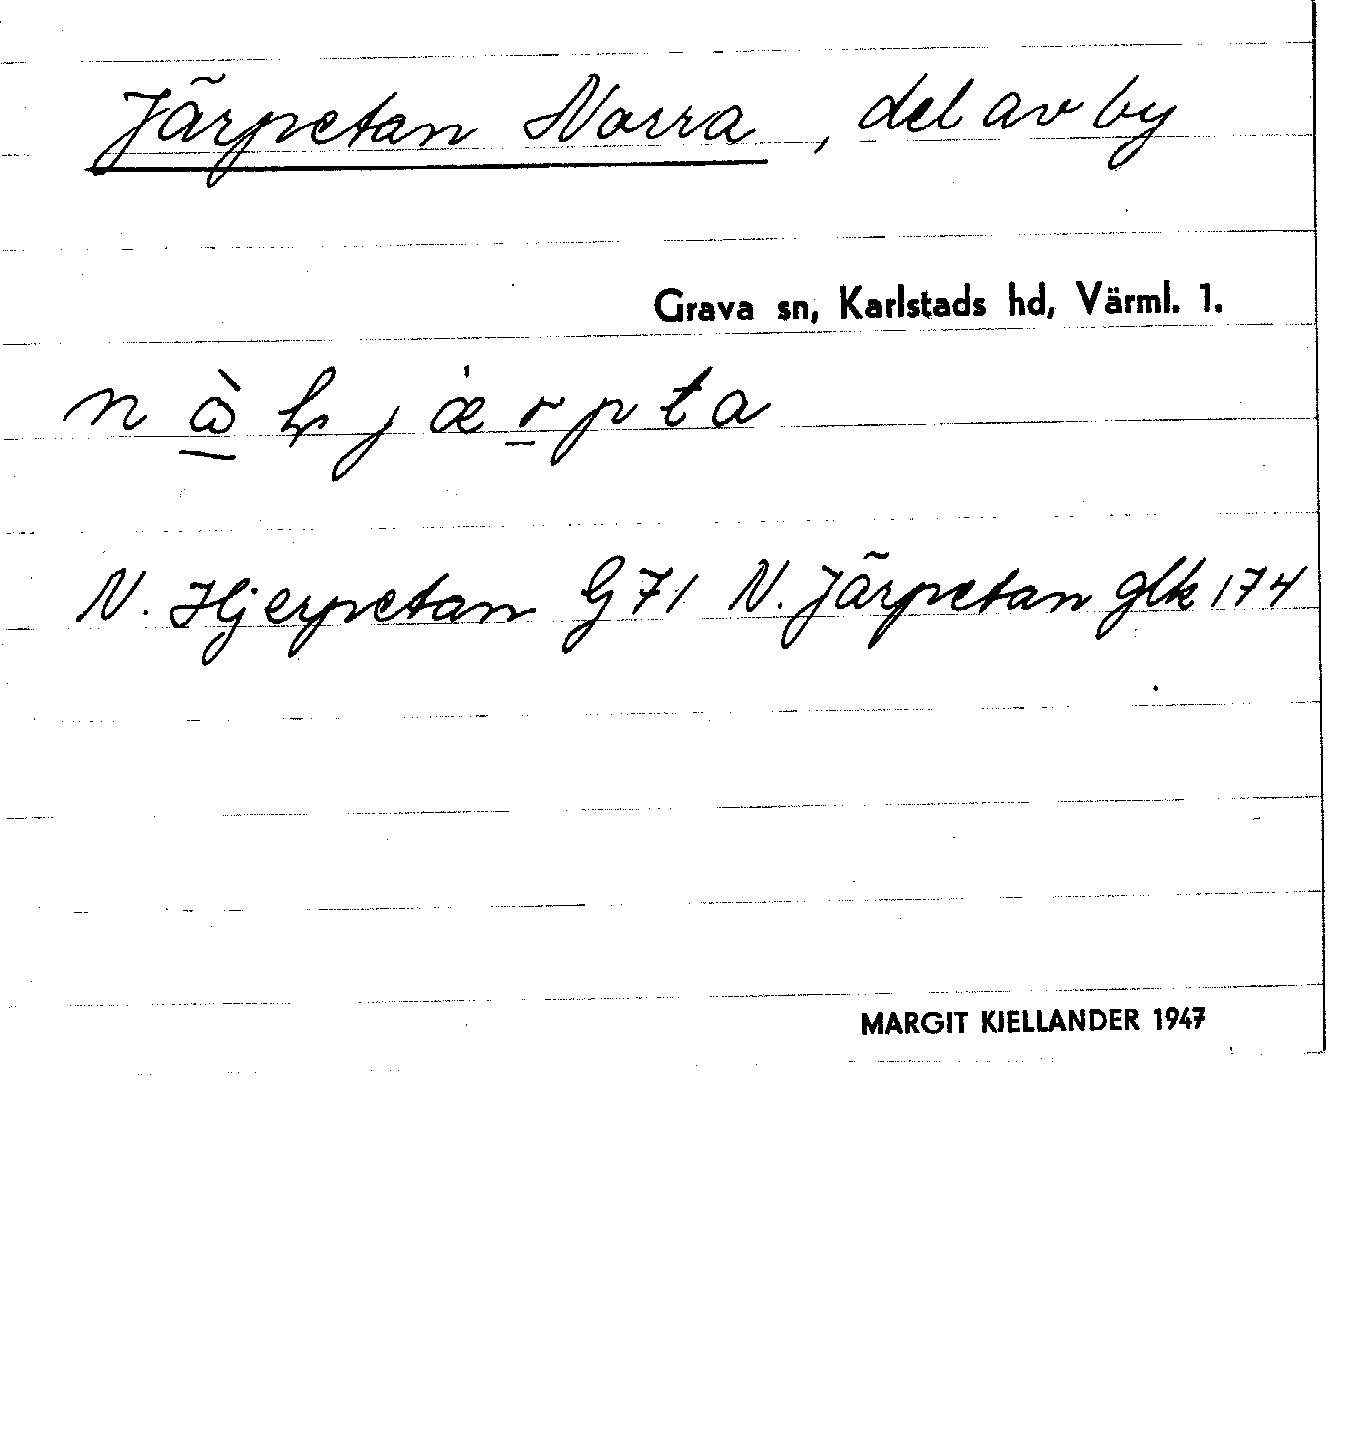 Järpetan Norra, del av by
Grava sn, Karlstads hd, Värml. 1.
N. Hjerpetan G71 N. Järpetan glk 174
MARGIT KJELLANDER 1947